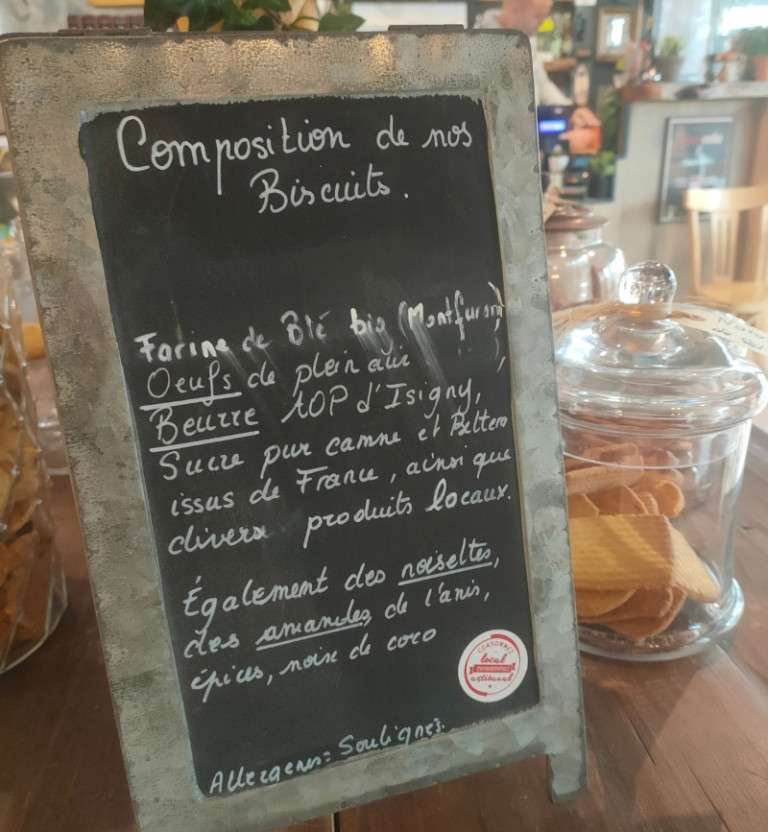 Composition de nos
Biscuits.
Farine de Blé bio (Montfuron),
Oeufs de plein air
Beurre AOP d'Isigny,
Sucre pur canne et
issus de France, ainsi que
divers produits locaux.
Également des noisettes,
des amandes de l'anis,
épices, noix de coco
CONSOMMEZ
local
artisanal
Allergens: Soulignés.